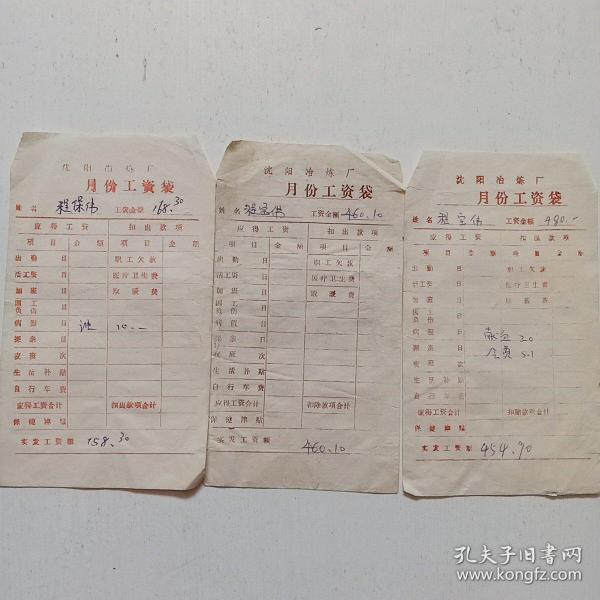 沈阳冶炼厂
月份工资袋
姓名 程保伟 工资金额 168.30
应得工资 扣出款项
项目 金额 项目 金额
出勤 日 职工欠款
活工资 日 医疗卫生费
加班 日 取暖费
因工负伤 日
病假 日 10.—
探亲 日
夜班 次
生活补贴
自行车费
应得工资合计 扣出款项合计
保健津贴
实发工资额 158.30
沈阳冶炼厂
月份工资袋
姓名 程宝伟 工资金额 460.10
应得工资 扣出款项
项目 金额 项目 金额
出勤 日 职工欠款
活工资 日 医疗卫生费
加班 日 取暖费
因工负伤 日
病假 日
探亲 日
夜班 次
生活补贴
自行车费
应得工资合计 扣除款项合计
保健津贴
实发工资额 460.10
沈阳冶炼厂
月份工资袋
姓名 程宝伟 工资金额 480.—
应得工资 扣出款项
项目 金额 项目 金额
出勤 日 职工欠款
活工资 日 医疗卫生费
加班 日 取暖费
因工负伤 日
病假 日 20
探亲 日 会费 5.1
夜班 次
生活补贴
自行车费
应得工资合计 扣除款项合计
保健津贴
实发工资额 454.90
孔夫子旧书网
www.kongfz.com